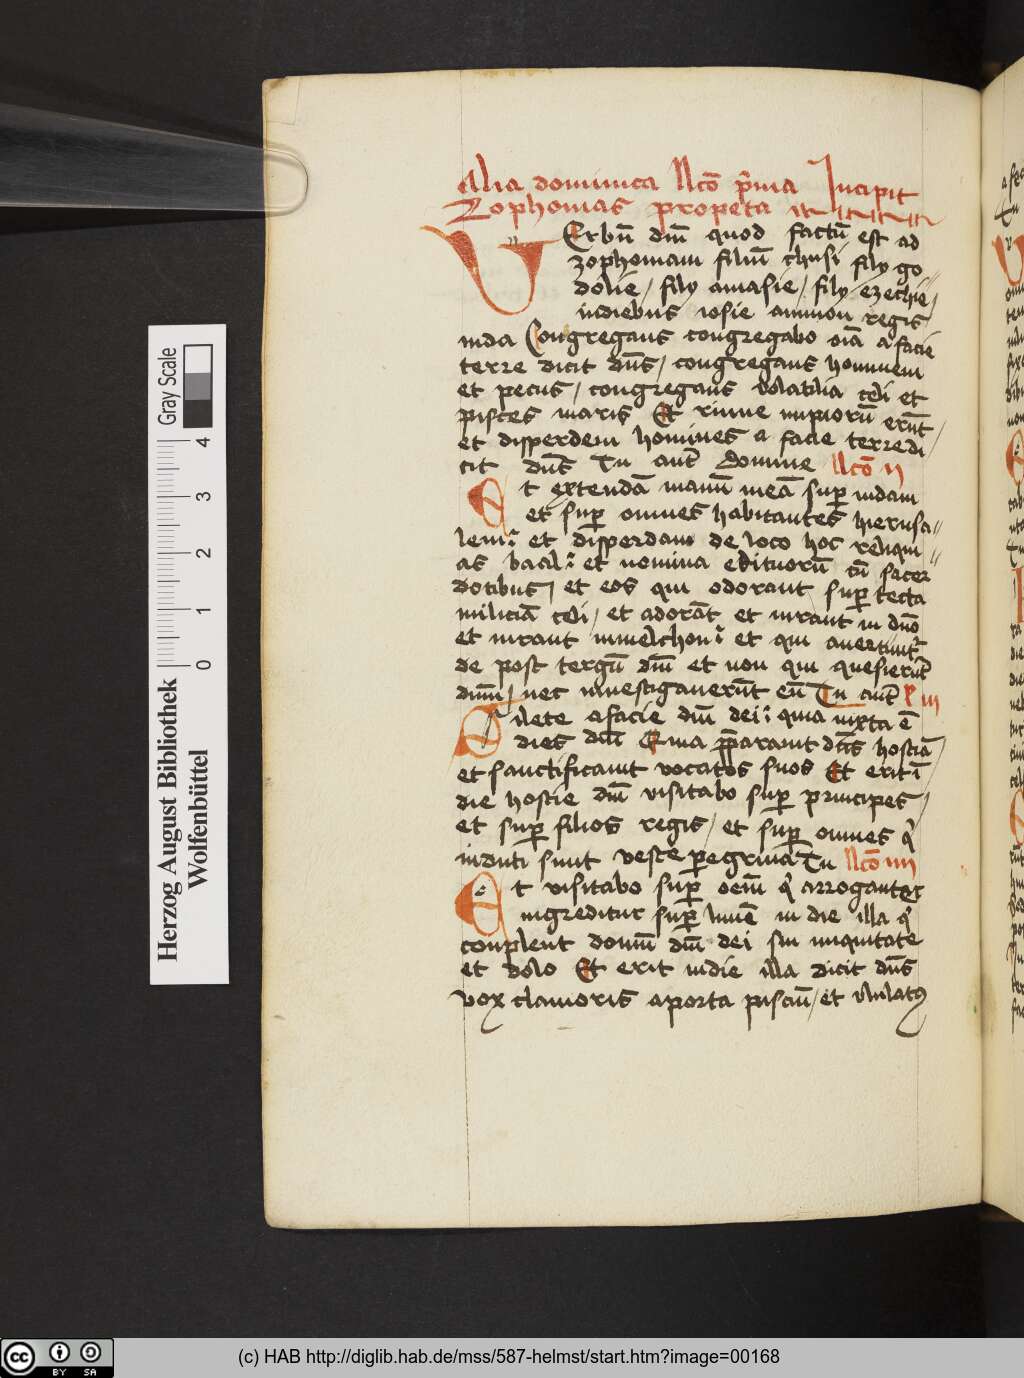 Alia dominica llcō p̄ma Incipit
Zophonias propeta
VErbū dni̅ quod factū est ad
zophoniam filiū chusi fily go
dolie / fily amasie / fily ezechie /
indiebus iosie ammon regis
iuda Congregans congregabo oīa a facie
terre dicit dn̄s / congregans hominem
et pecus / congregans volatilia celi et
pisces maris Et rui̅ne impiorū erūt /
et disperdem homines a facie terre di
cit dn̄s Tu aut̄ domine llcō ii
Et extendā manū meā sup̱ iudam
et sup̱ omnes habitantes hierusa
lem et disperdam de loco hoc reliqui
as baal et nomina edituorū cū sacer
dotibus / et eos qui odorant sup̱ tecta
miliciā celi / et adorāt et iurant in dn̄o
et iurant inmelchom et qui auertunt̄
de post tergū dni̅ et non qui quesierūt
dnm̄ / nec inuestigauerūt eū Tu aut̄ iii
Silete afacie dni̅ dei quia iuxta ē
dies dni̅ Quia p̱parauit dn̄s hostiā /
et sanctificauit vocatos suos Et erit ī
die hostie dni̅ visitabo sup̱ principes /
et sup̱ filios regis / et sup̱ omnes q̇
induti sunt veste peregrina Tu llcō iiii
Et visitabo sup̱ oem̄ q̇ arroganter
ingreditur sup̱ limē in die illa q̇
conplent domū dni̅ dei sui iniquitate
et dolo Et erit indie illa dicit dn̄s
vox clamoris aporta pisciū / et vlulatꝯ
Gray Scale
4 3 2 1 0
Herzog August Bibliothek
Wolfenbüttel
cc BY SA
(c) HAB http://diglib.hab.de/mss/587-helmst/start.htm?image=00168